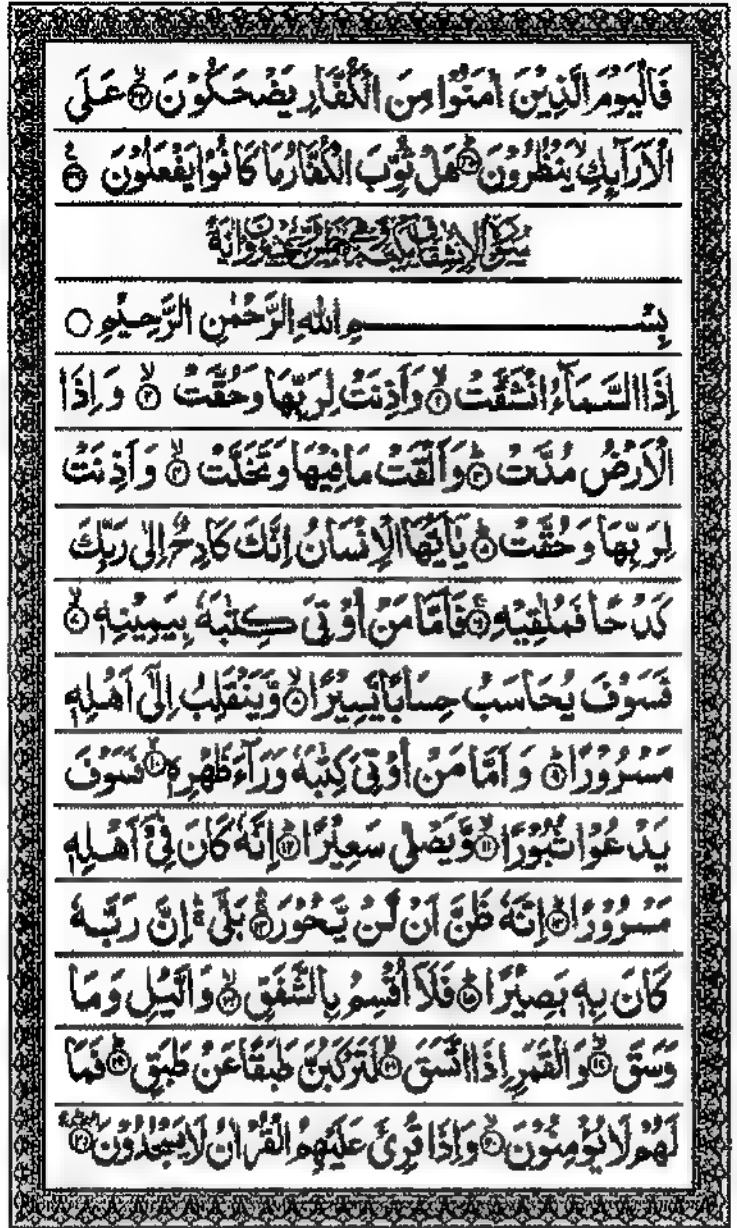 فَالْيَوْمَ الَّذِيْنَ اٰمَنُوْا مِنَ الْكُفَّارِ يَضْحَكُوْنَ ﴿۳۴﴾ عَلَى
الْاَرَآئِكِ يَنْظُرُوْنَ ﴿۳۵﴾ هَلْ ثُوِّبَ الْكُفَّارُ مَا كَانُوْا يَفْعَلُوْنَ ﴿۳۶﴾
بِسْمِ اللهِ الرَّحْمٰنِ الرَّحِيْمِ
اِذَا السَّمَآءُ انْشَقَّتْ ﴿۱﴾ وَاَذِنَتْ لِرَبِّهَا وَحُقَّتْ ﴿۲﴾ وَاِذَا
الْاَرْضُ مُدَّتْ ﴿۳﴾ وَاَلْقَتْ مَا فِيْهَا وَتَخَلَّتْ ﴿۴﴾ وَاَذِنَتْ
لِرَبِّهَا وَحُقَّتْ ﴿۵﴾ يٰۤاَيُّهَا الْاِنْسَانُ اِنَّكَ كَادِحٌ اِلٰى رَبِّكَ
كَدْحًا فَمُلٰقِيْهِ ﴿۶﴾ فَاَمَّا مَنْ اُوْتِيَ كِتٰبَهٗ بِيَمِيْنِهٖ ﴿۷﴾
فَسَوْفَ يُحَاسَبُ حِسَابًا يَّسِيْرًا ﴿۸﴾ وَّيَنْقَلِبُ اِلٰۤى اَهْلِهٖ
مَسْرُوْرًا ﴿۹﴾ وَاَمَّا مَنْ اُوْتِيَ كِتٰبَهٗ وَرَآءَ ظَهْرِهٖ ﴿۱۰﴾ فَسَوْفَ
يَدْعُوْا ثُبُوْرًا ﴿۱۱﴾ وَّيَصْلٰى سَعِيْرًا ﴿۱۲﴾ اِنَّهٗ كَانَ فِيْۤ اَهْلِهٖ
مَسْرُوْرًا ﴿۱۳﴾ اِنَّهٗ ظَنَّ اَنْ لَّنْ يَّحُوْرَ ﴿۱۴﴾ بَلٰۤى ۛ اِنَّ رَبَّهٗ
كَانَ بِهٖ بَصِيْرًا ﴿۱۵﴾ فَلَاۤ اُقْسِمُ بِالشَّفَقِ ﴿۱۶﴾ وَالَّيْلِ وَمَا
وَسَقَ ﴿۱۷﴾ وَالْقَمَرِ اِذَا اتَّسَقَ ﴿۱۸﴾ لَتَرْكَبُنَّ طَبَقًا عَنْ طَبَقٍ ﴿۱۹﴾ فَمَا
لَهُمْ لَا يُؤْمِنُوْنَ ﴿۲۰﴾ وَاِذَا قُرِئَ عَلَيْهِمُ الْقُرْاٰنُ لَا يَسْجُدُوْنَ ﴿۲۱﴾